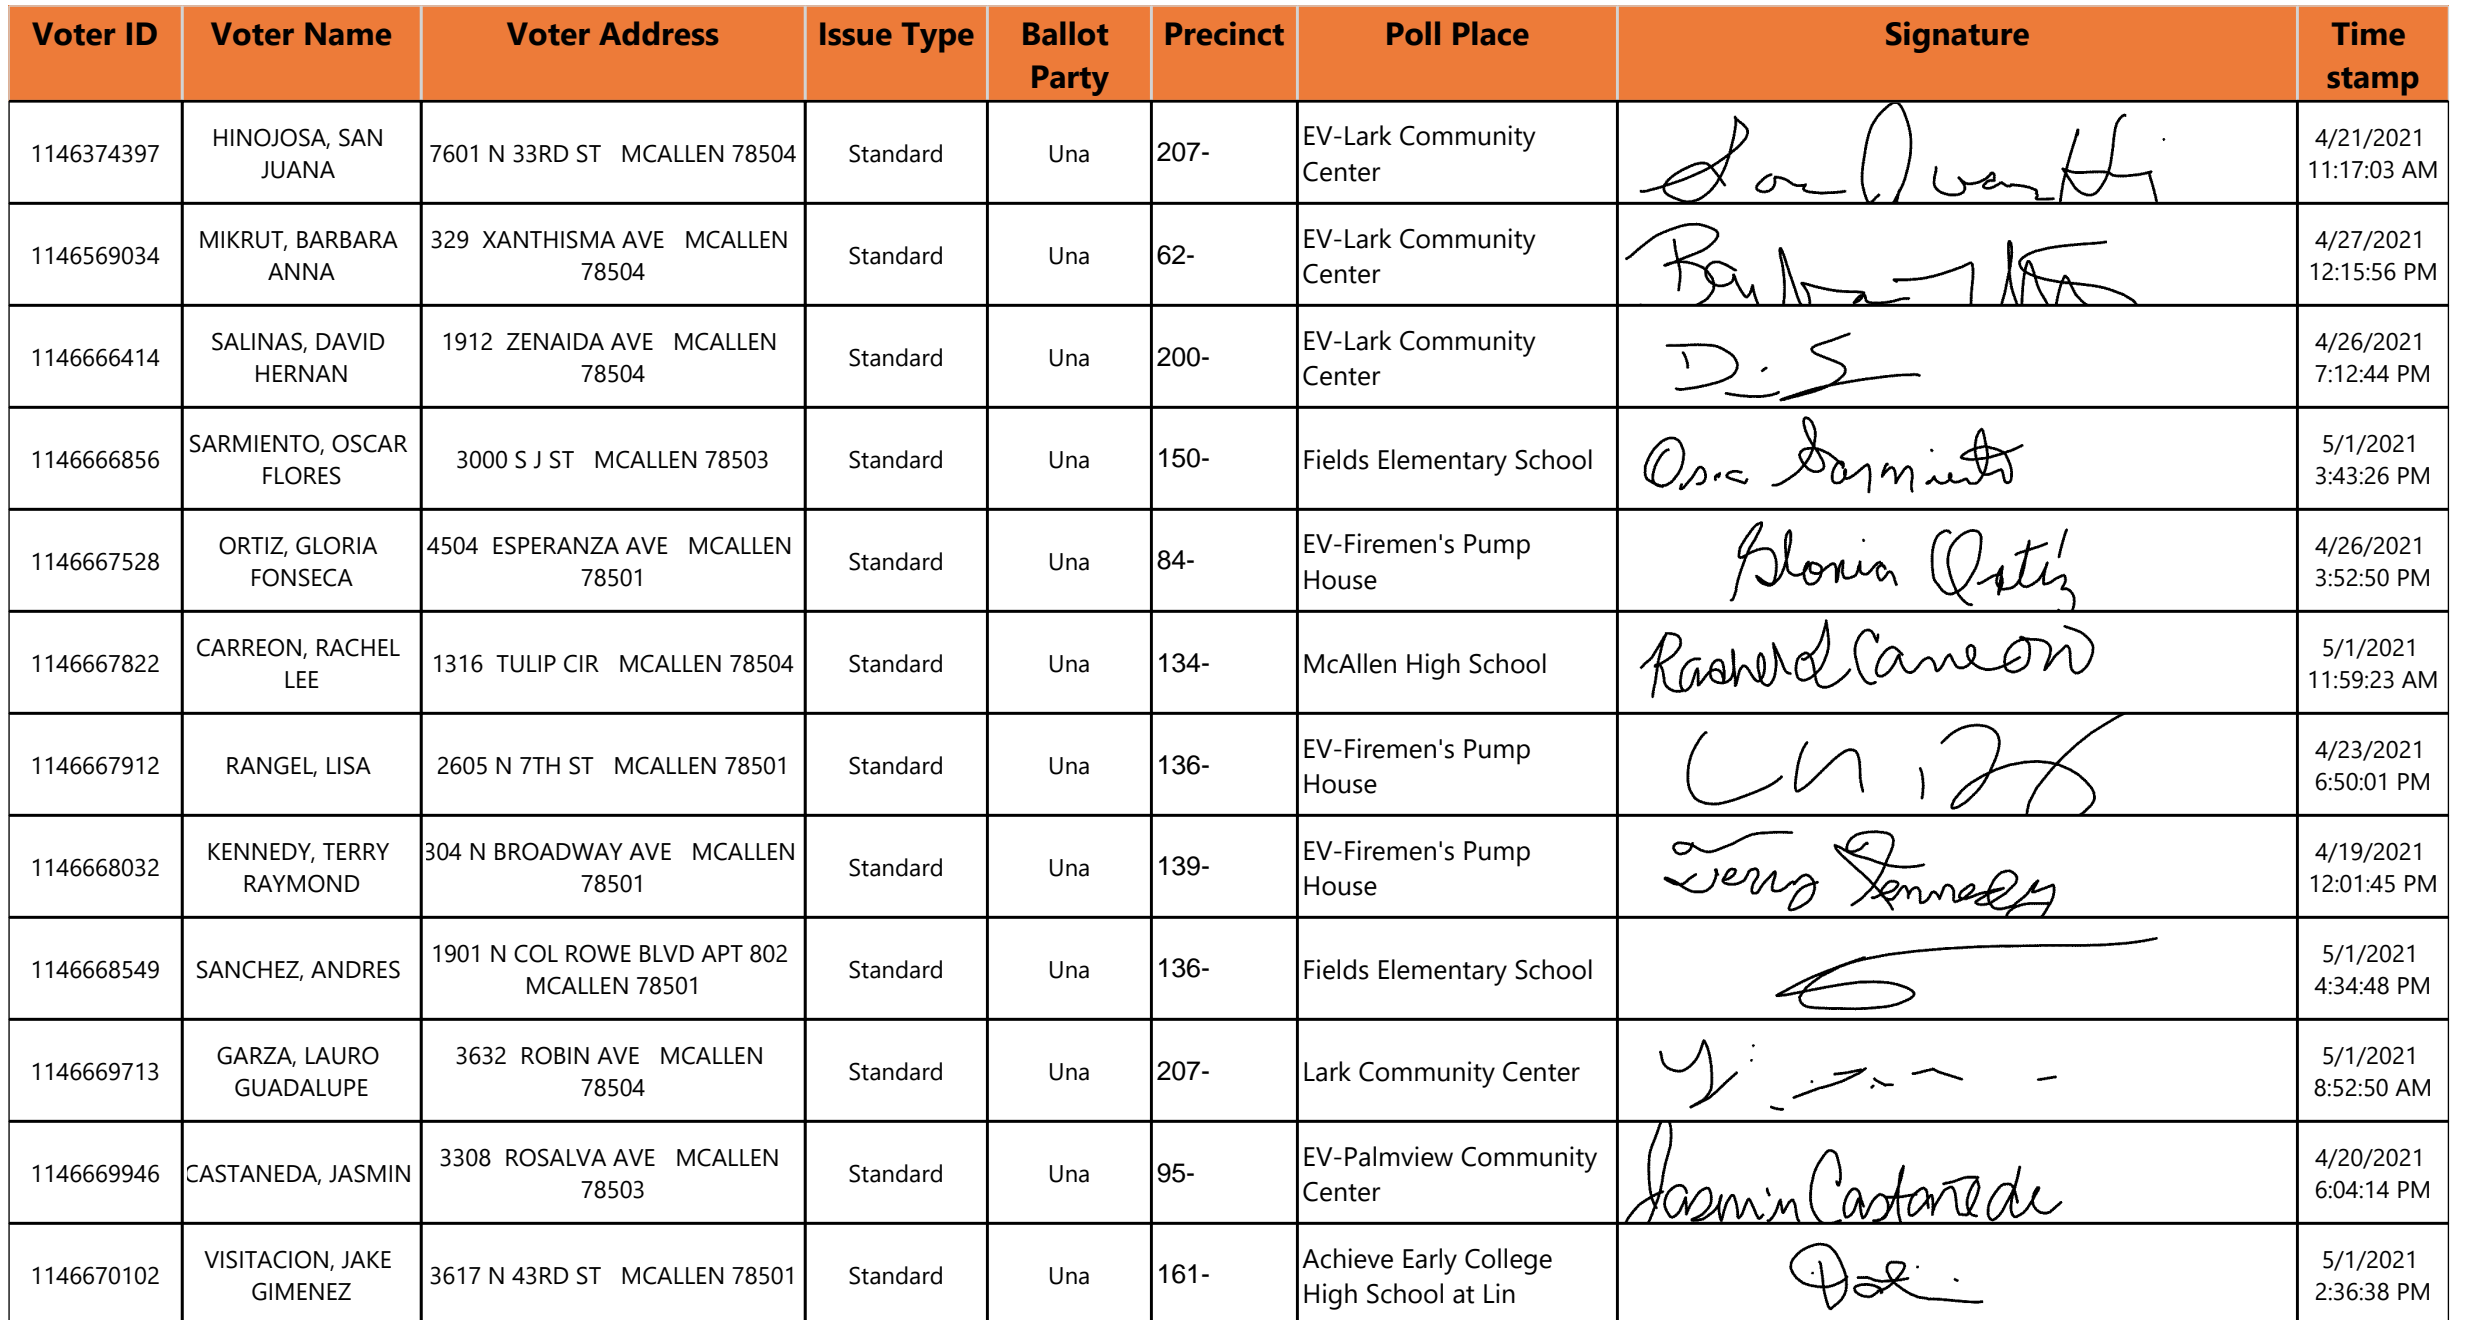 Voter ID Voter Name Voter Address Issue Type Ballot Party Precinct Poll Place Signature Time stamp
1146374397 HINOJOSA, SAN JUANA 7601 N 33RD ST MCALLEN 78504 Standard Una 207- EV-Lark Community Center 4/21/2021 11:17:03 AM
1146569034 MIKRUT, BARBARA ANNA 329 XANTHISMA AVE MCALLEN 78504 Standard Una 62- EV-Lark Community Center 4/27/2021 12:15:56 PM
1146666414 SALINAS, DAVID HERNAN 1912 ZENAIDA AVE MCALLEN 78504 Standard Una 200- EV-Lark Community Center D. S 4/26/2021 7:12:44 PM
1146666856 SARMIENTO, OSCAR FLORES 3000 S J ST MCALLEN 78503 Standard Una 150- Fields Elementary School Sarmiento 5/1/2021 3:43:26 PM
1146667528 ORTIZ, GLORIA FONSECA 4504 ESPERANZA AVE MCALLEN 78501 Standard Una 84- EV-Firemen's Pump House Gloria Ortiz 4/26/2021 3:52:50 PM
1146667822 CARREON, RACHEL LEE 1316 TULIP CIR MCALLEN 78504 Standard Una 134- McAllen High School Rachel L Carreon 5/1/2021 11:59:23 AM
1146667912 RANGEL, LISA 2605 N 7TH ST MCALLEN 78501 Standard Una 136- EV-Firemen's Pump House 4/23/2021 6:50:01 PM
1146668032 KENNEDY, TERRY RAYMOND 304 N BROADWAY AVE MCALLEN 78501 Standard Una 139- EV-Firemen's Pump House Terry Kennedy 4/19/2021 12:01:45 PM
1146668549 SANCHEZ, ANDRES 1901 N COL ROWE BLVD APT 802 MCALLEN 78501 Standard Una 136- Fields Elementary School 5/1/2021 4:34:48 PM
1146669713 GARZA, LAURO GUADALUPE 3632 ROBIN AVE MCALLEN 78504 Standard Una 207- Lark Community Center 5/1/2021 8:52:50 AM
1146669946 CASTANEDA, JASMIN 3308 ROSALVA AVE MCALLEN 78503 Standard Una 95- EV-Palmview Community Center Jasmin Castañeda 4/20/2021 6:04:14 PM
1146670102 VISITACION, JAKE GIMENEZ 3617 N 43RD ST MCALLEN 78501 Standard Una 161- Achieve Early College High School at Lin 5/1/2021 2:36:38 PM